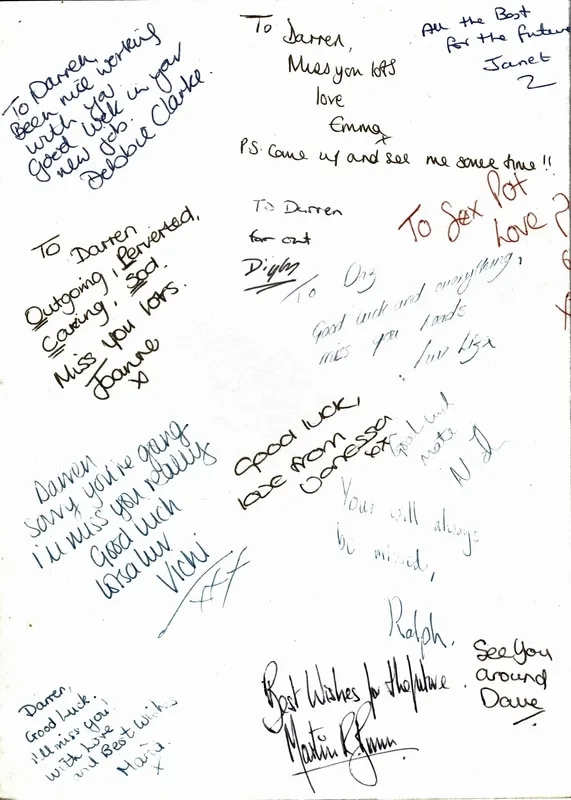 To Darren,
Been nice working
with you
Good luck in your
new job.
Debbie Clarke.
To Darren,
Miss you lots
love
Emma x
P.S. Come up and see me some time!!
All the Best
for the future
Janet
2
To Darren
Outgoing, Perverted,
Caring, Sod.
Miss you lots.
Joanne
x
To Darren
far out
To Sex Pot
Love
To Daz
Good luck and everything,
miss you loads
luv Liz x
Good luck,
love from
Vanessa
xxx
Good luck
mate
Darren
Sorry you're going
I'll miss you really
Good luck
lotsa luv
Vicki
xxx
You will always
be missed,
Ralph.
Darren,
Good Luck.
I'll miss you!
with Love
and Best Wishes
Maria.
x
Best Wishes for the future.
Martin R.
See you
around
Dave